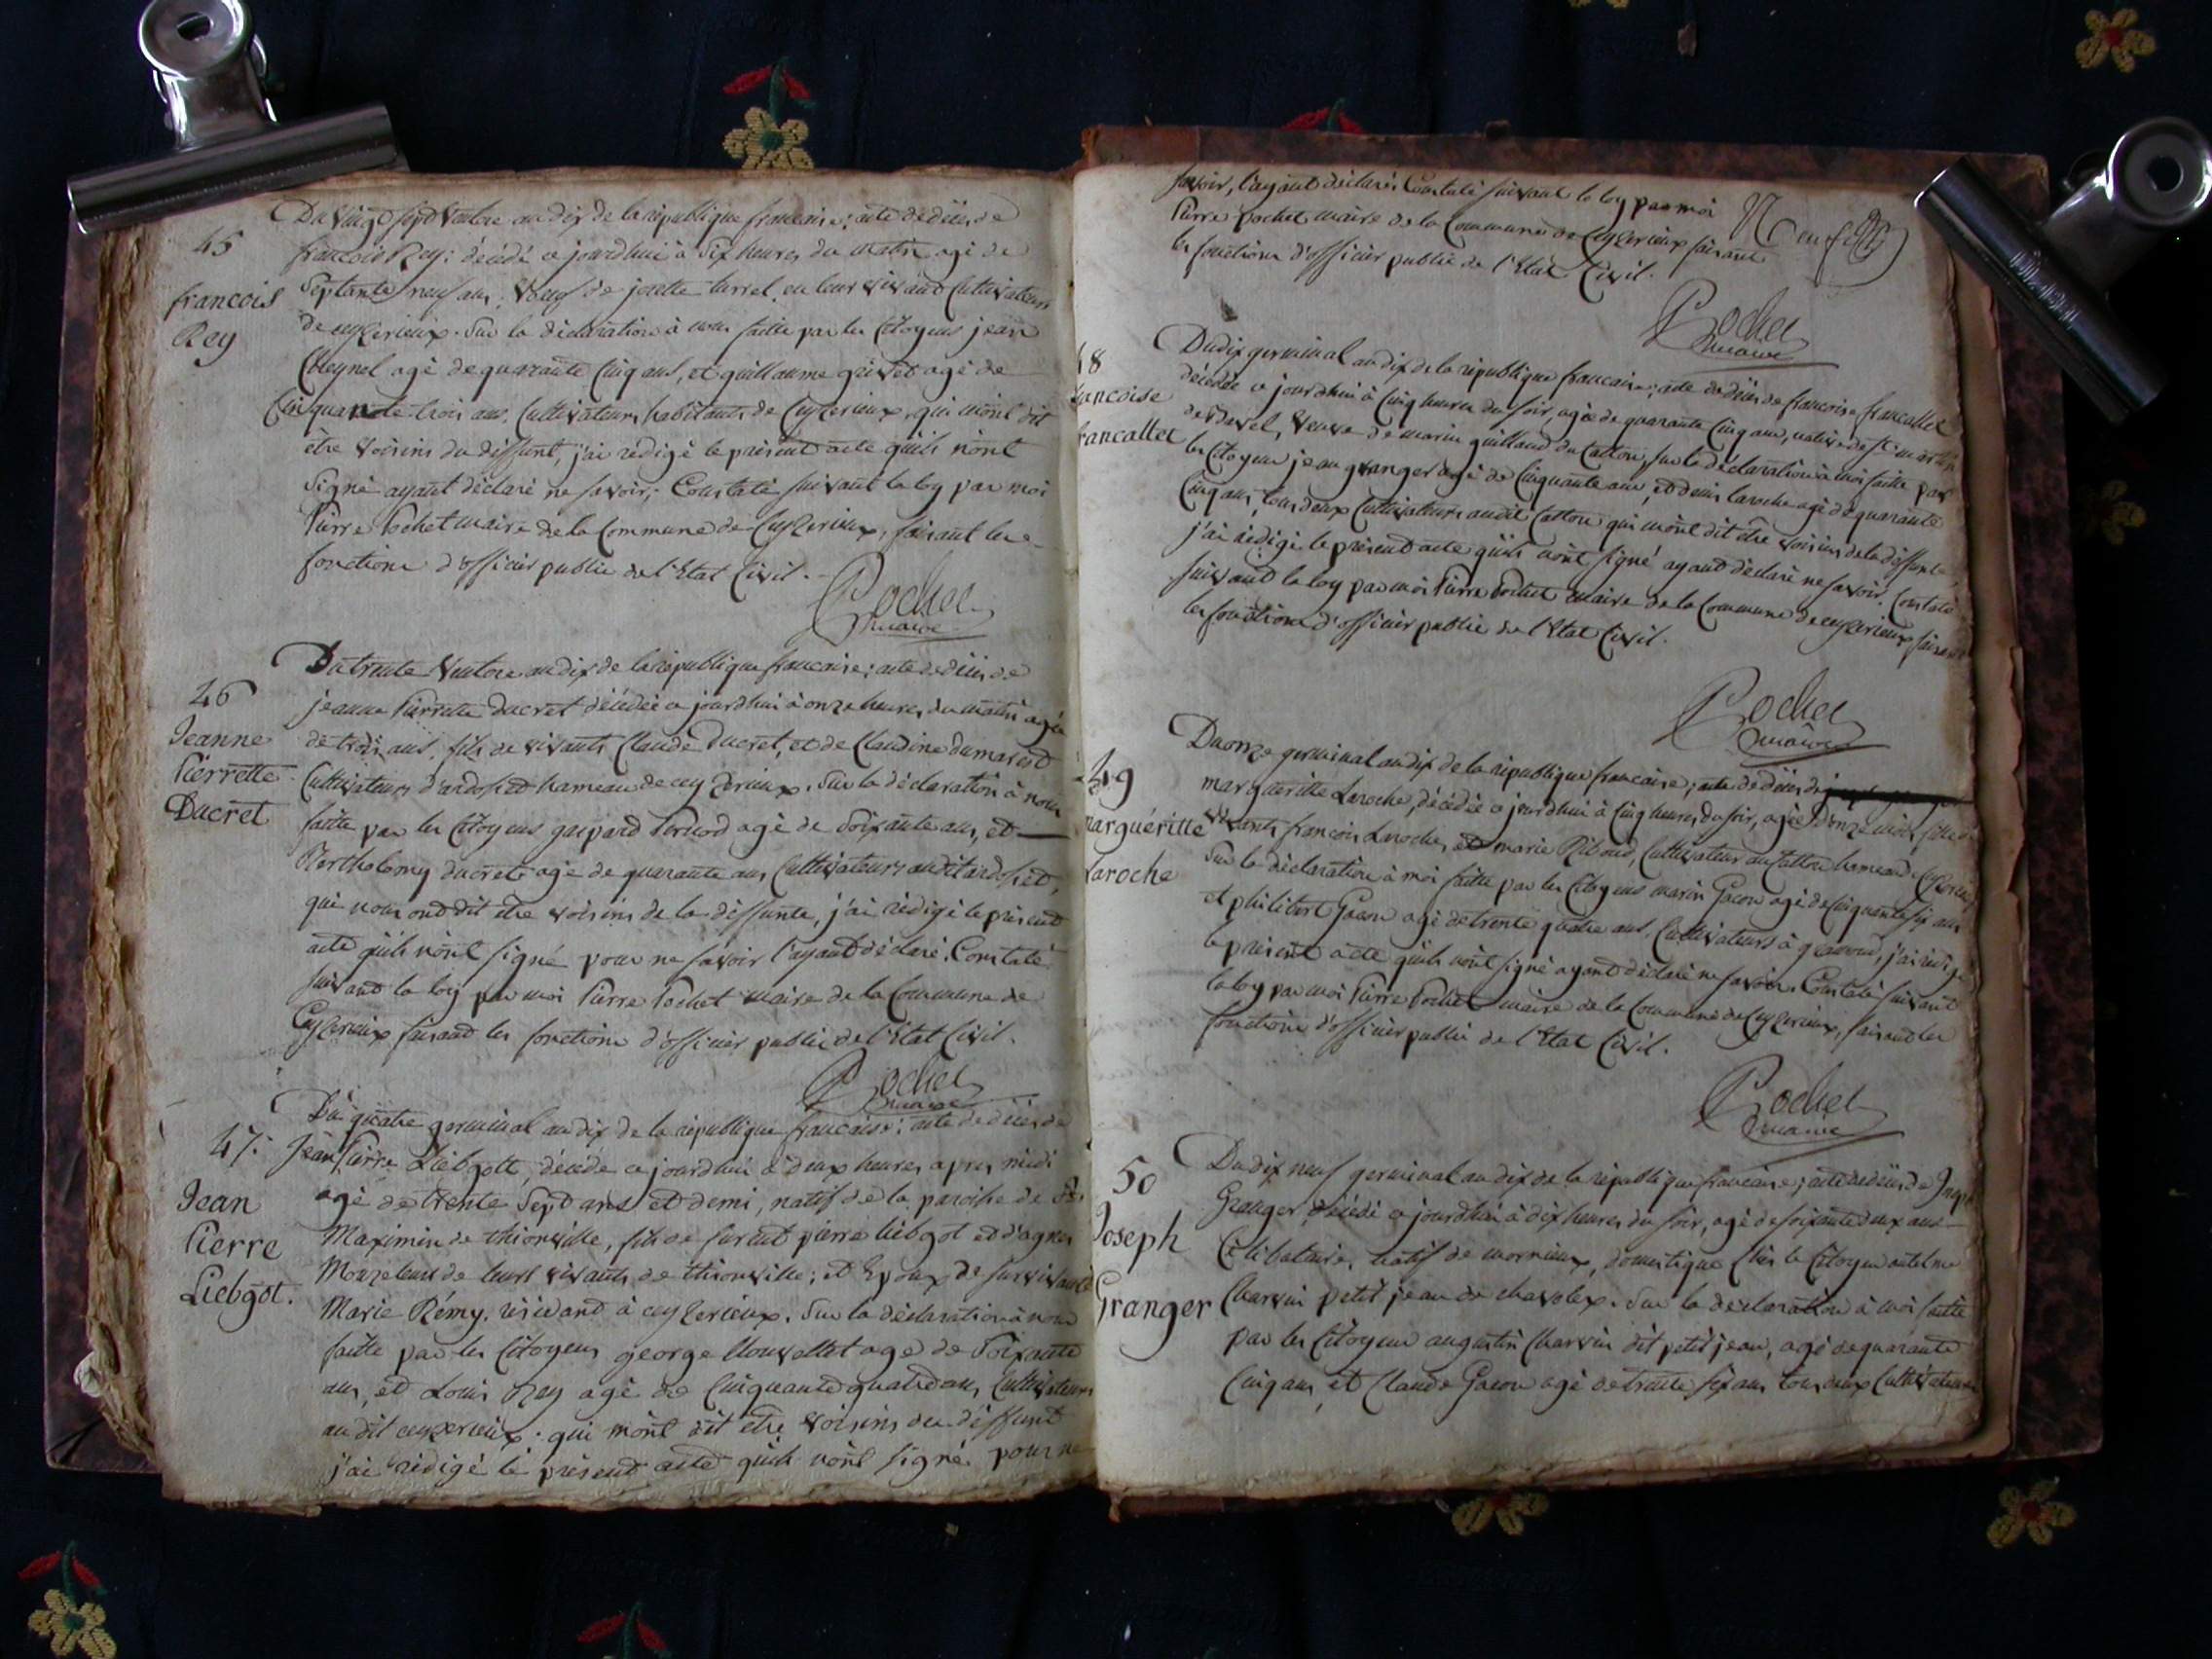 45
francois
Rey
Du vingt sept ventose an dix de la république francaise; acte de décés de
francois Rey; décédé ce jourdhui à six heures du matin agé de
septante neuf ans, veuf de josette turrel, en leur vivant Cultivateurs
de ceyzerieux. Sur la déclaration à nous faitte par les Citoyens jean
Cheynel agé de quarante Cinq ans, et guillaume grivet agé de
Cinquante trois ans, Cultivateurs habitants de Ceyzerieux, qui m'ont dit
être voisins du déffunt, j'ai rédigé le présent acte qu'ils n'ont
signé ayant déclaré ne savoir; Constaté suivant la loy par moi
Pierre Pochet maire de la Commune de Ceyzerieux, faisant les
fonctions d'officier public de l'Etat Civil.
Pochet
maire
46
Jeanne
Pierrette
Ducret
Du trente ventose an dix de la république francaise; acte de décés de
jeanne Pierrette Ducret décédée ce jourdhui à onze heures du matin agée
de trois ans, fille de vivants Claude Ducret, et de Claudine dumarest
Cultivateurs d'ardosset hameau de ceyzerieux. Sur la déclaration à nous
faitte par les Citoyens gaspard agé de soixante ans, et
Barthelemy ducret agé de quarante ans Cultivateurs audit ardosset,
qui nous ont dit etre voisins de la déffunte, j'ai rédigé le présent
acte qu'ils n'ont signé pour ne savoir l'ayant déclaré. Constaté
suivant la loy par moi Pierre Pochet maire de la Commune de
Ceyzerieux faisant les fonctions d'officier public de l'Etat Civil.
Pochet
maire
47.
Jean
Pierre
Liebgot.
Du quatre germinal an dix de la république francaise; acte de décés de
Jean Pierre Liebgott, décédé ce jourdhui à deux heures apres midi
agé de trente sept ans et demi, natif de la paroisse de St.
Maximin de thionville, fils de furent pierre liebgot et d'agnes
de leurs vivants de thionville; et Epoux de survivante
Marie Rémy, résidant à ceyzerieux. Sur la déclaration à nous
faitte par les Citoyens george agé de soixante
ans, et Louis Rey agé de Cinquante quatre ans, Cultivateurs
au dit ceyzerieux. qui m'ont dit etre voisins du déffunt
j'ai rédigé le présent acte qu'ils n'ont signé. pour ne
savoir, l'ayant déclaré. Constaté suivant la loy par moi
Pierre pochet maire de la Commune de Ceyzerieux faisant
les fonctions d'officier public de l'Etat Civil.
Neuf
Pochet
maire
48
francoise
francallet
Du dix germinal an dix de la république francaise; acte de décés de francoise francallet
décédée ce jourdhui à Cinq heures du soir, agée de quarante Cinq ans, native de St. martin
de vavel, veuve de marin guilland du Catton, sur la déclaration à moi faitte par
les Citoyens jean granger agé de Cinquante ans, et denis laroche agé de quarante
Cinq ans, tous deux Cultivateurs audit Catton qui m'ont dit etre voisins de la déffunte,
j'ai rédigé le présent acte qu'ils n'ont signé ayant déclaré ne savoir. Constaté
suivant la loy par moi Pierre Pochet maire de la Commune de ceyzerieux faisant
les fonctions d'officier public de l'Etat Civil.
Pochet
maire
49
marguéritte
Laroche
Du onze germinal an dix de la république francaise; acte de décés de
marguéritte Laroche, décédée ce jourdhui à Cinq heures du soir, agée d'onze mois, fille de
vivants francois Laroche, et marie Riboud, Cultivateur au Catton hameau de Ceyzerieux
Sur la déclaration à moi faitte par les Citoyens marin Gacon agé de Cinquante six ans
et philibert Gacon agé de trente quatre ans, Cultivateurs à j'ai rédigé
le présent acte qu'ils n'ont signé ayant déclaré ne savoir. Constaté suivant
la loy par moi Pierre Pochet maire de la Commune de Ceyzerieux, faisant les
fonctions d'officier public de l'Etat Civil.
Pochet
maire
50
Joseph
Granger
Du dix neuf germinal an dix de la république francaise; acte de décés de Joseph
Granger, décédé ce jourdhui à dix heures du soir, agé de soixante deux ans
Célibataire, natif de mornieux, domestique chés le Citoyen antelme
Charvin petit jean de chavoley. Sur la déclaration à moi faitte
par les Citoyens augustin Charvin dit petit jean, agé de quarante
Cinq ans, et Claude Gacon agé de trente six ans tous deux Cultivateurs